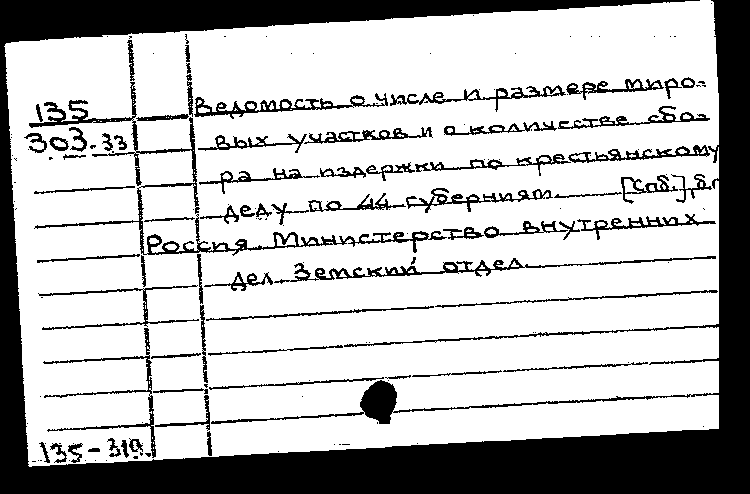 135
303.33
Ведомость о числе и размере миро-
вых участков и о количестве сбо-
ра на издержки по крестьянскому
делу по 44 губерниям. [Спб.], б.г
Россия. Министерство внутренних
дел. Земский отдел.
135-319.